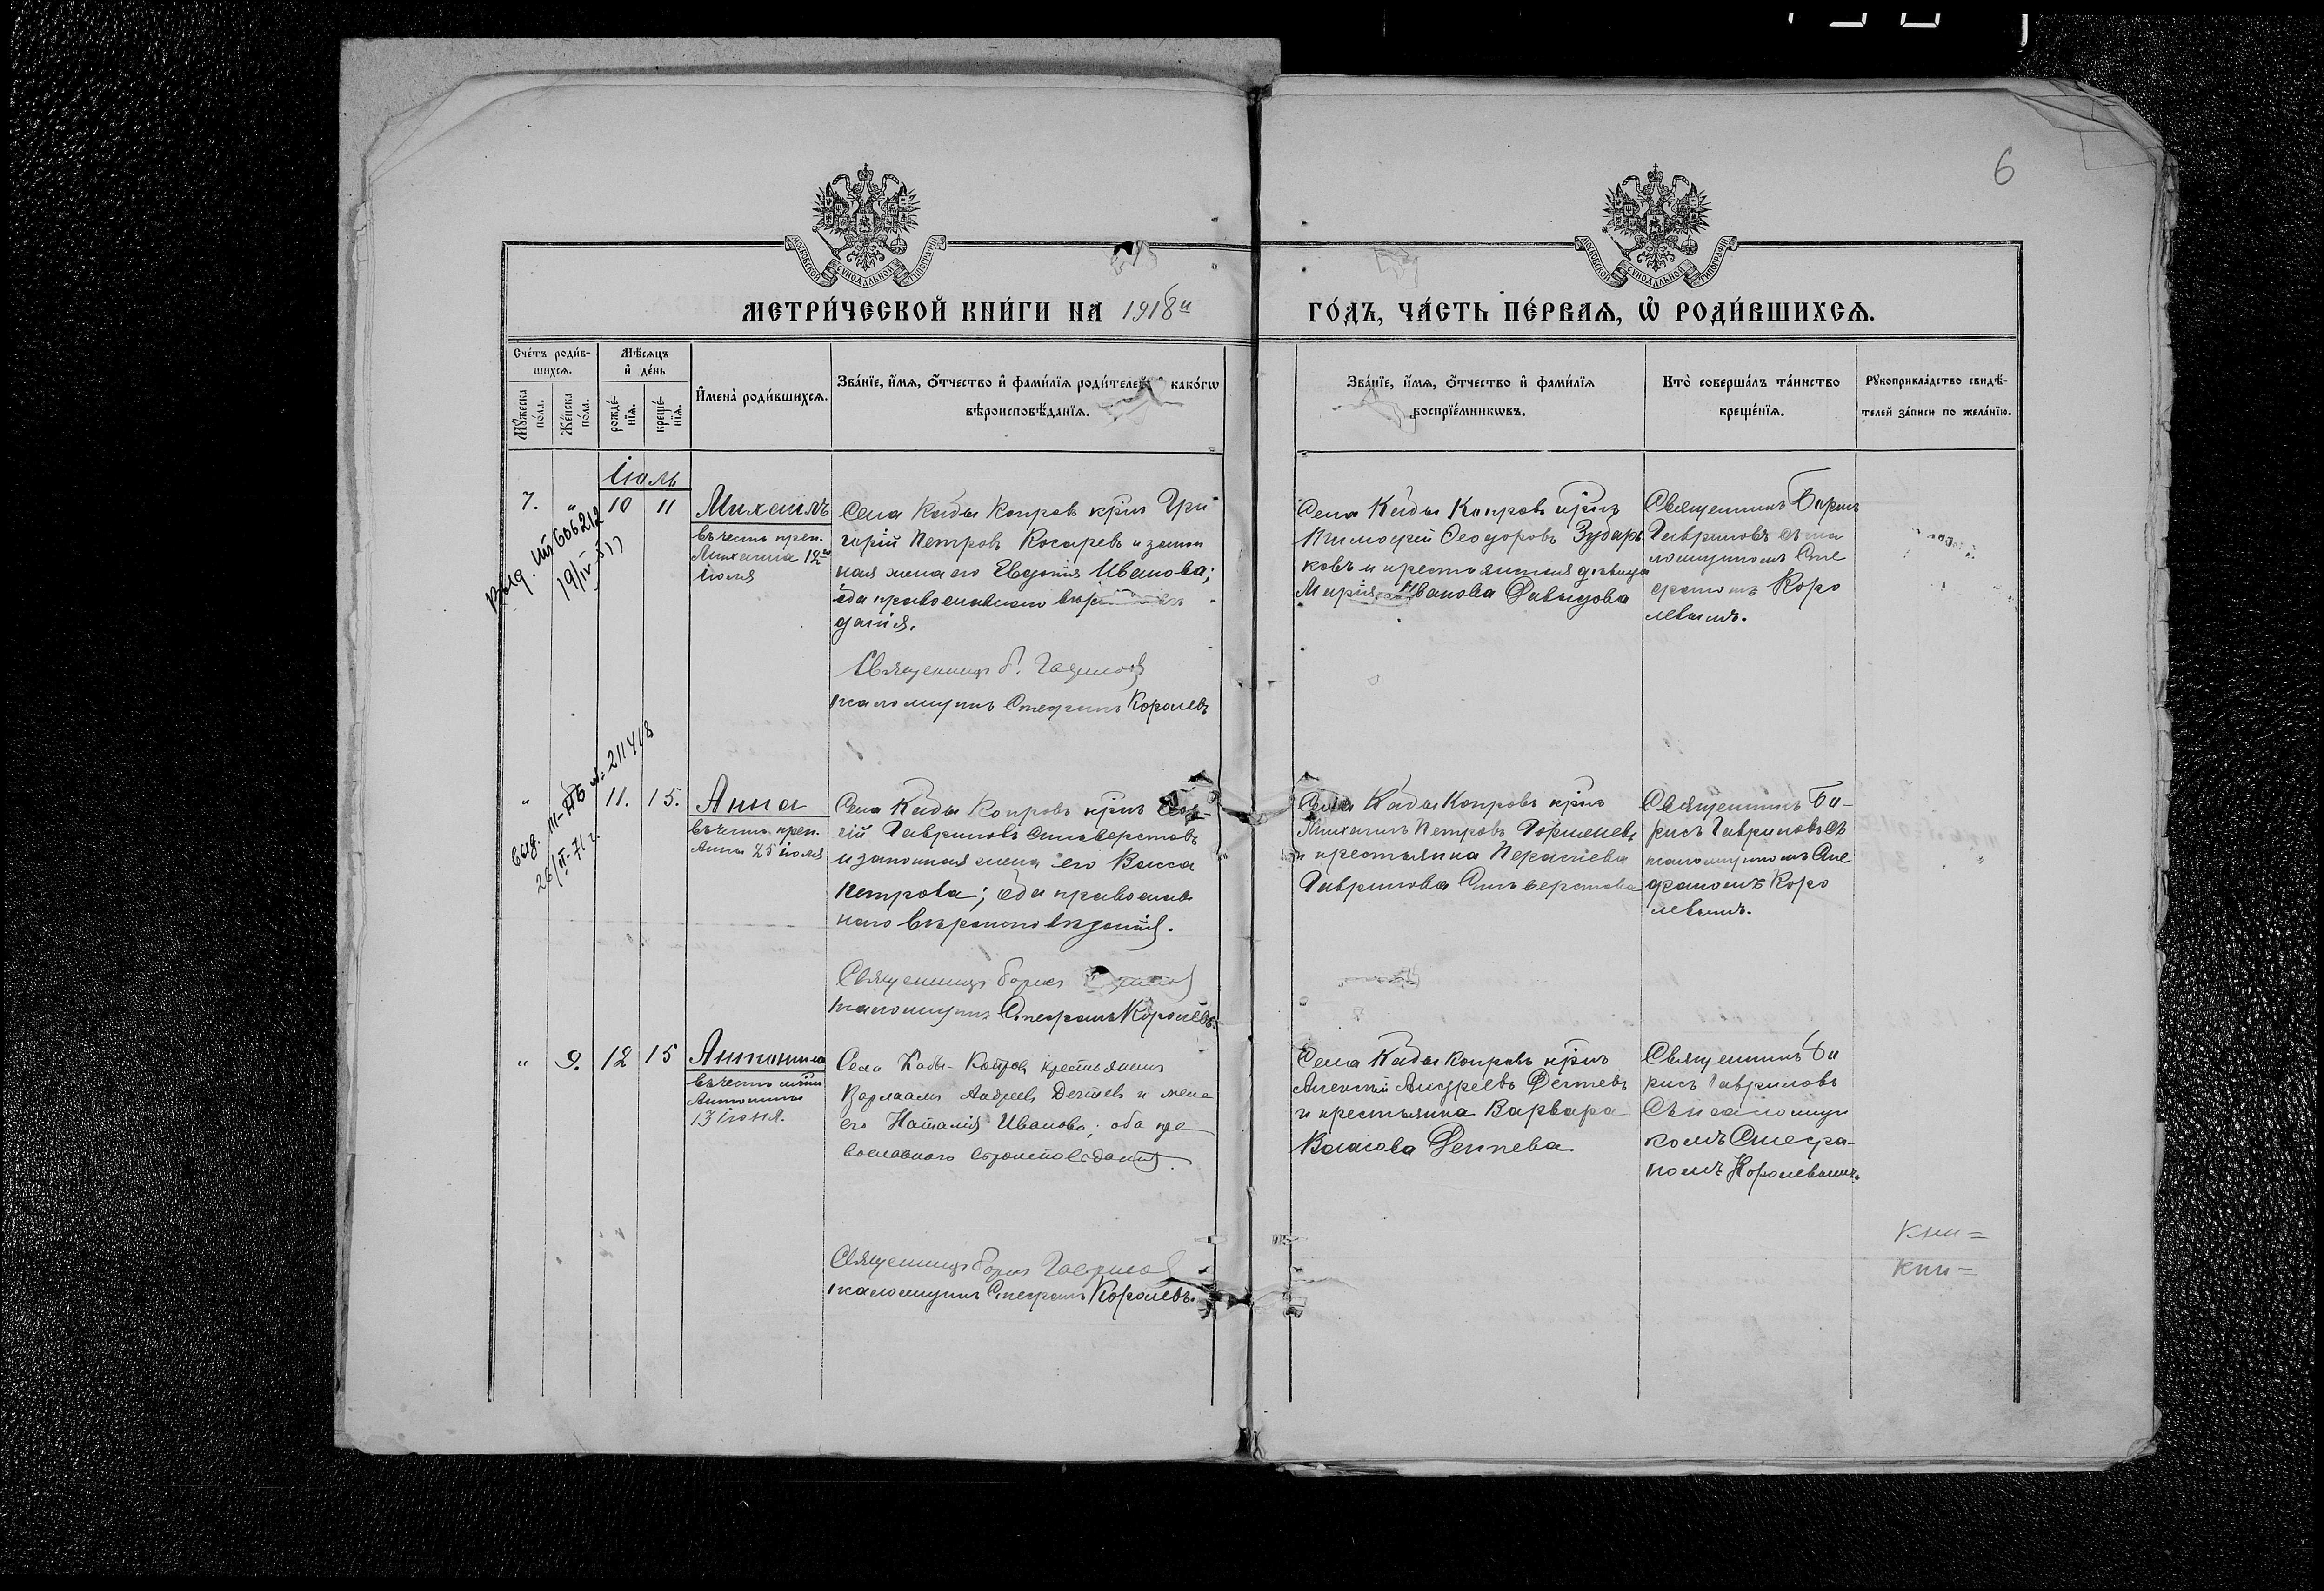 6
МЕТРИ́ЧЕСКОЙ КНИ́ГИ НА 1918й ГО́ДЪ, ЧА́СТЬ ПЕ́РВАѦ, Ѡ РОДИ́ВШИХСѦ.
МОСКОВСКОЙ СѴНОДАЛЬНОЙ ТИПОГРАФІИ
МОСКОВСКОЙ СѴНОДАЛЬНОЙ ТИПОГРАФІИ
Сче́тъ роди́в-
шихсѧ.
Мꙋ́жеска
по́ла.
Же́нска
по́ла.
Мѣ́сѧцъ
и҆ де́нь
рожде́-
нїѧ.
креще́-
нїѧ.
И҆мена̀ роди́вшихсѧ.
Зва́нїе, и҆́мѧ, ѻ҆́тчество и҆ фами́лїѧ роди́телей како́гѡ
вѣроисповѣ́данїѧ.
Зва́нїе, и҆́мѧ, ѻ҆́тчество и҆ фами́лїѧ
воспрїе́мникѡвъ.
Кто̀ соверша́лъ та́инство
креще́нїѧ.
Рꙋкоприкла́дство свидѣ́-
телей за́писи по жела́нїю.
Іюль
7. " 10 11
Михаилъ
въ честь преп.
Михаила 12го
іюля
Села Кады Копровъ крнъ Гри
горій Петровъ Косаревъ и закон
ная жена его Евдокія Иванова;
оба православнаго
данія.
Священникъ Б. Гаврилов
псаломщикъ Стефанъ Королевъ
Села Кады Копровъ крнъ
Тимофей Ѳеодоровъ Зубаръ
ковъ и крестьянская дѣвица
Марія Иванова Давыдова
Священникъ Борисъ
Гавриловъ съ пса
ломщикомъ Сте
фаномъ Коро
левымъ.
19/IV-
" 11. 15.
Анна
въ честь преп.
Анны 25 іюля
Села Кады Копровъ крнъ
гій Гавриловъ Сильверстовъ
и законная жена его Васса
Петрова; оба православ
наго вѣроисповѣданія.
Священникъ Борис
псаломщикъ Стефанъ Королевъ.
Села Кады Копровъ крнъ
Михаилъ Петровъ Горшеневъ
и крестьянка
Гаврилова Сильверстова
Священникъ Бо-
рисъ Гавриловъ съ
псаломщикомъ Сте
фаномъ Коро
левымъ.
выд. 211418
26/II-71 г.
" 9. 12 15
Антонина
въ честь мчцы
Антонины
13 іюня.
Села Кады-Копров крестьянин
Варлаам Андреев Дектев и жена
его Наталія Иванова; оба пра
вославного вѣроисповѣданія.
Священникъ Борис Гаврилов
псаломщикъ Стефанъ Королевъ.
Села Кады Копровъ крнъ
Алексѣй Андреевъ Дектевъ
и крестьянка Варвара
Власова Дектева
Священникъ Бо
рисъ Гавриловъ
съ псаломщи
комъ Стефа-
номъ Королевымъ.